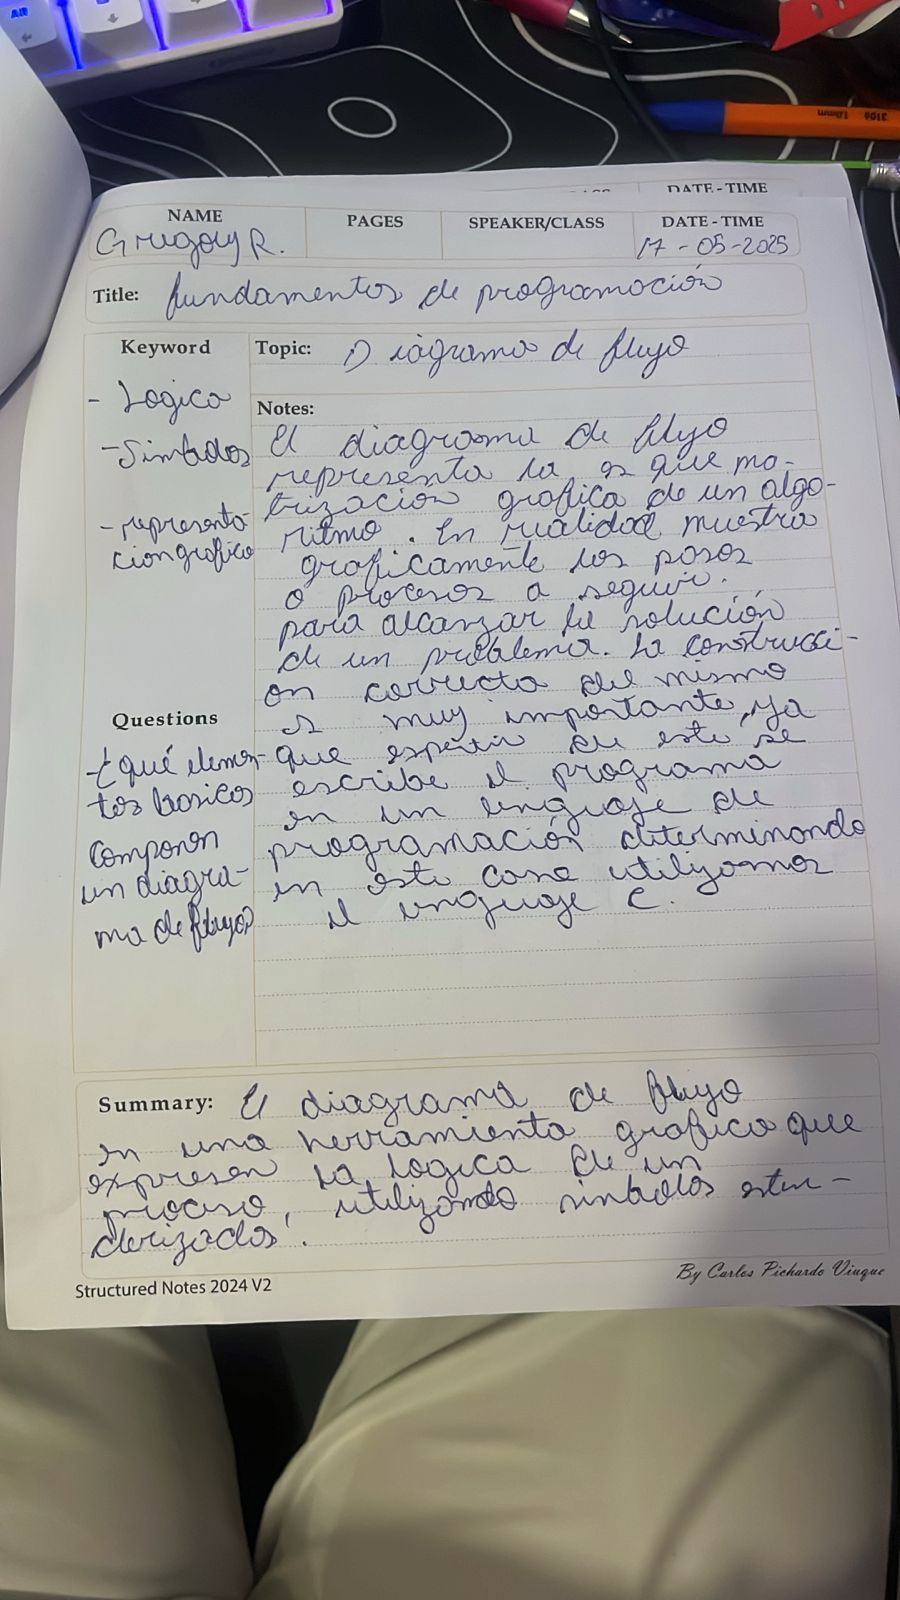 DATE-TIME
NAME
PAGES
SPEAKER/CLASS
DATE-TIME
Gregory R.
17-05-2025
Title: fundamentos de programación
Keyword
- Logica
- Simbolos
- representa-
cion grafica
Topic: Diagrama de flujo
Notes:
El diagrama de flujo
representa la es que ma-
tización grafica de un algo-
ritmo. En realidad muestra
graficamente los pasos
o procesos a seguir.
para alcanzar la solución
de un problema. La construcci-
on correcta del mismo
es muy importante, ya
que de este se
escribe el programa
en un lenguaje de
programación determinando
en este caso utilizamos
el lenguaje C.
Questions
-¿qué elemen-
tos basicos
componen
un diagra-
ma de flujo?
Summary: El diagrama de flujo
en una herramienta grafica que
expresen la logica de un
proceso, utilizando simbolos estan-
derizados.
Structured Notes 2024 V2
By Carlos Pichardo Viuque